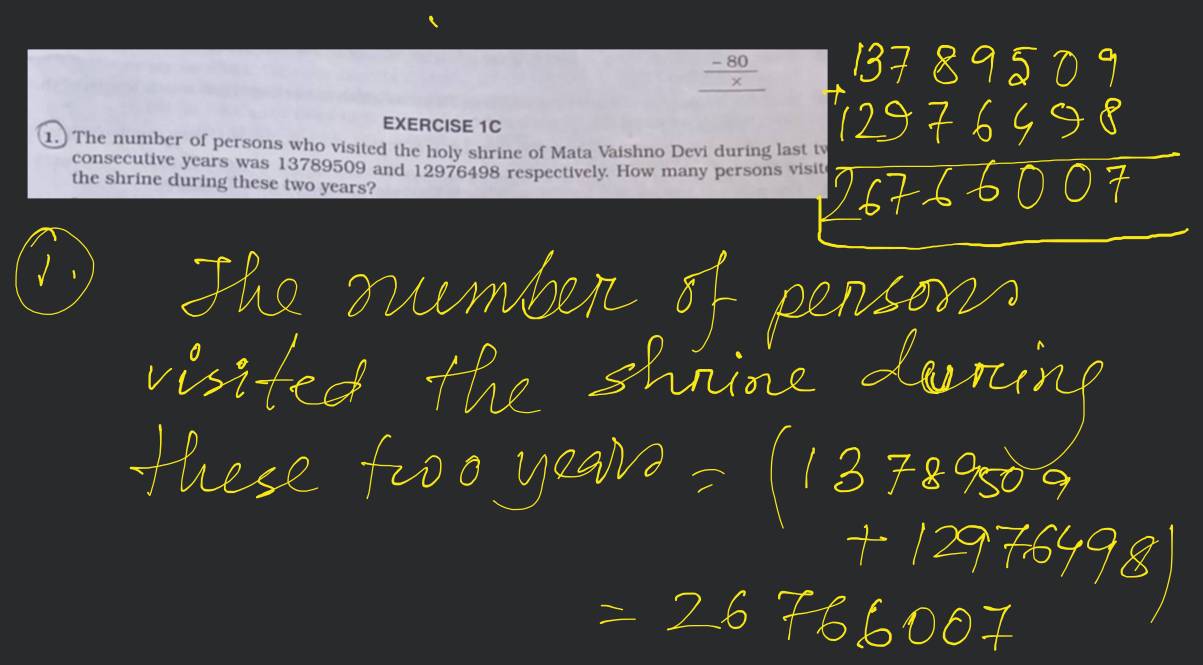 - 80
x
EXERCISE 1C
1. The number of persons who visited the holy shrine of Mata Vaishno Devi during last
consecutive years was 13789509 and 12976498 respectively. How many persons
the shrine during these two years?
13789509
+
12976498
26766007
1. The number of persons
visited the shrine during
these two years = (13789509
+ 12976498)
= 26766007